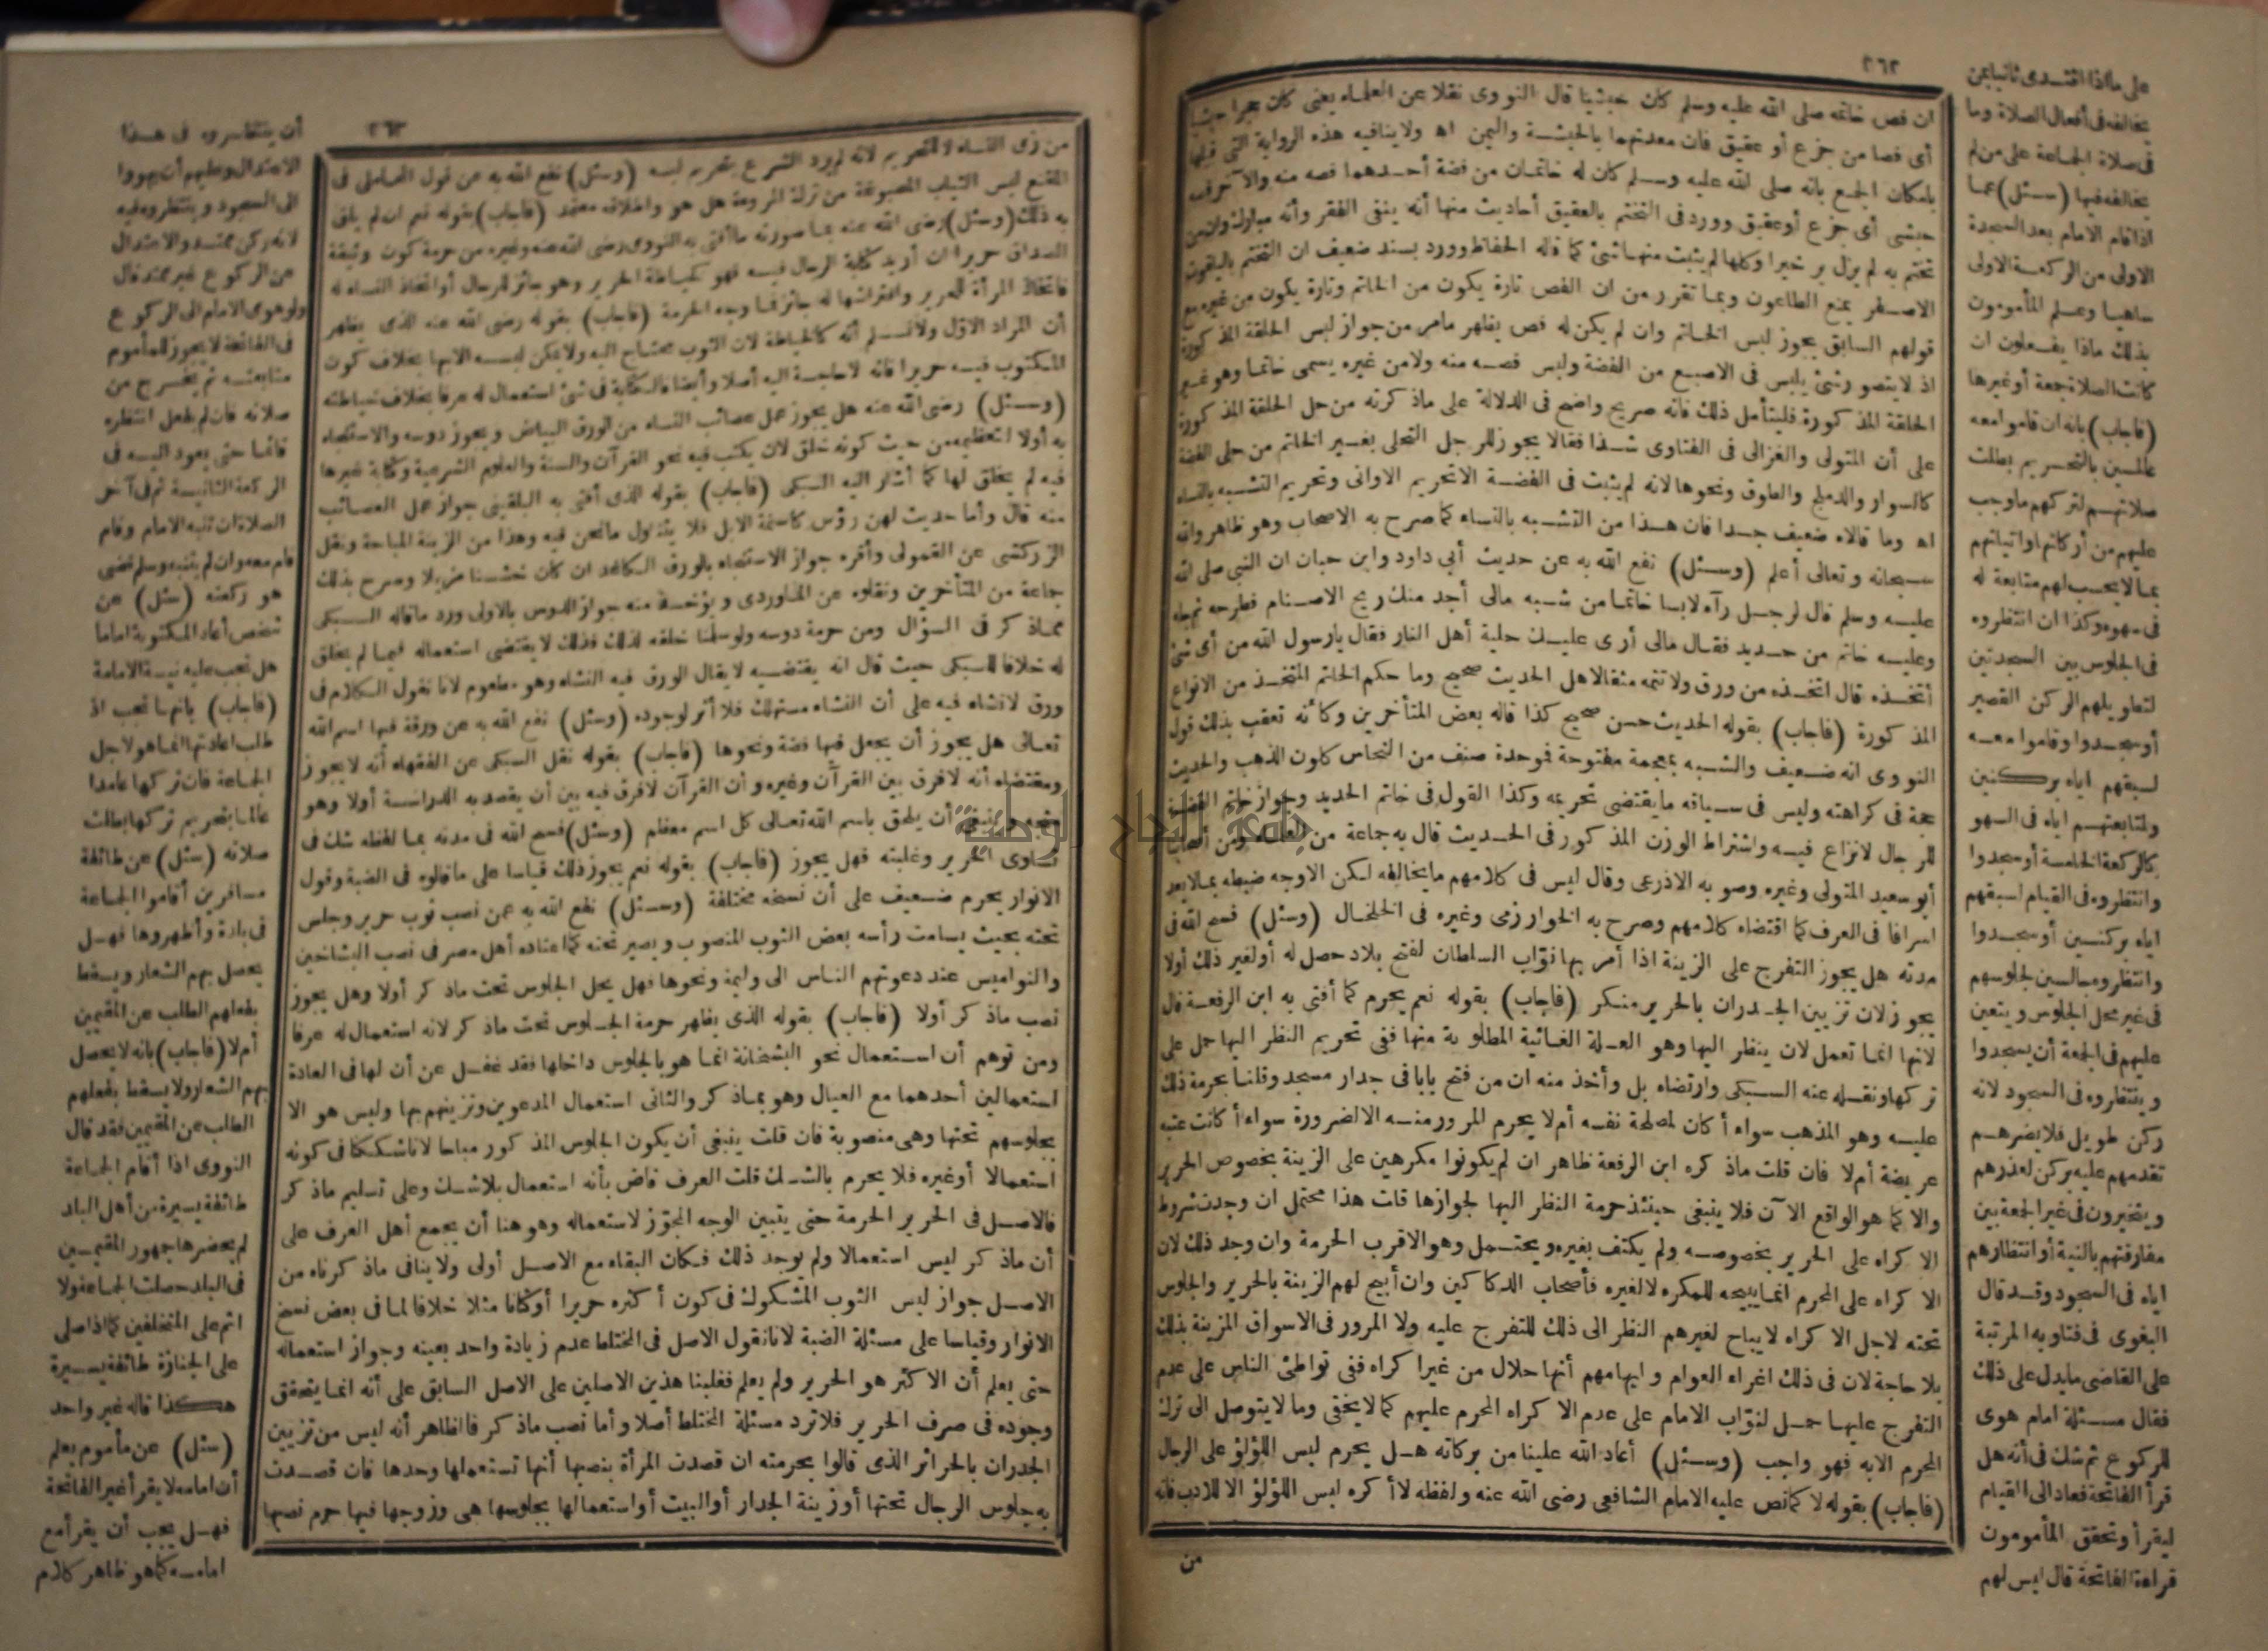 ٢٦٢
ان فص خاتمه صلى الله عليه وسلم كان حبشيا قال النووى نقلا عن العلماء يعنى كان حجرا حبشيا
أى فصا من جزع أو عقيق فان معدنهما بالحبشة واليمن اه ولا ينافيه هذه الرواية التى قبلها
بامكان الجمع بانه صلى الله عليه وسلم كان له خاتمان من فضة أحدهما فصه منه والآخر فصه
حبشى أى جزع أو عقيق وورد فى التختم بالعقيق أحاديث منها أنه ينفى الفقر وأنه مبارك وان من
تختم به لم يزل ير خيرا وكلها لم يثبت منها شئ كما قاله الحفاظ وورد بسند ضعيف ان التختم بالياقوت
الاصفر يمنع الطاعون وبما تقرر من ان الفص تارة يكون من الخاتم وتارة يكون من غيره مع
قولهم السابق يجوز لبس الخاتم وان لم يكن له فص يظهر مامر من جواز لبس الحلقة المذكورة
اذ لا يتصور شئ يلبس فى الاصبع من الفضة وليس فصه منه ولا من غيره يسمى خاتما وهو غير
الحلقة المذكورة فليتأمل ذلك فانه صريح واضح فى الدلالة على ماذكرته من حل الحلقة المذكورة
على أن المتولى والغزالى فى الفتاوى شذا فقالا يجوز للرجل التحلى بغير الخاتم من حلى الفضة
كالسوار والدملج والطوق ونحوها لانه لم يثبت فى الفضة الا تحريم الاوانى وتحريم التشبه بالنساء
اه وما قالاه ضعيف جدا فان هذا من التشبه بالنساء كما صرح به الاصحاب وهو ظاهر والله
سبحانه وتعالى أعلم (وسئل) نفع الله به عن حديث أبى داود وابن حبان ان النبى صلى الله
عليه وسلم قال لرجل رآه لابسا خاتما من شبه مالى أجد منك ريح الاصنام فطرحه ثم جاء
وعليه خاتم من حديد فقال مالى أرى عليك حلية أهل النار فقال يارسول الله من أى شئ
أتخذه قال اتخذه من ورق ولا تتمه مثقالا هل الحديث صحيح وما حكم الخاتم المتخذ من الانواع
المذكورة (فأجاب) بقوله الحديث حسن صحيح كذا قاله بعض المتأخرين وكأنه تعقب بذلك قول
النووى انه ضعيف والشبه بمعجمة مفتوحة فموحدة صنف من النحاس كلون الذهب والحديث
حجة فى كراهته وليس فى سياقه ما يقتضى تحريمه وكذا القول فى خاتم الحديد وجواز خاتم الفضة
للرجال لانزاع فيه واشتراط الوزن المذكور فى الحديث قال به جماعة من العلماء ومن أصحابنا
أبو سعيد المتولى وغيره وصوبه الاذرعى وقال ليس فى كلامهم ما يخالفه لكن الاوجه ضبطه بما لا يعد
اسرافا فى العرف كما اقتضاه كلامهم وصرح به الخوارزمى وغيره فى الخلخال (وسئل) فسح الله فى
مدته هل يجوز التفرج على الزينة اذا أمر بها نوّاب السلطان لفتح بلاد حصل له أو لغير ذلك أولا
يجوز لان تزيين الجدران بالحرير منكر (فأجاب) بقوله نعم يحرم كما أفتى به ابن الرفعة قال
لانها انما تعمل لان ينظر اليها وهو العلة الغائية المطلوبة منها ففى تحريم النظر اليها حمل على
تركها ونقله عنه السبكى وارتضاه بل وأخذ منه ان من فتح بابا فى جدار مسجد وقلنا بحرمة ذلك
عليه وهو المذهب سواء أكان لمصلحة نفسه أم لا يحرم المرور منه الا لضرورة سواء أكانت عتبه
عريضة أم لا فان قلت ماذكره ابن الرفعة ظاهر ان لم يكونوا مكرهين على الزينة بخصوص الحرير
والا كما هو الواقع الآن فلا ينبغى حينئذ حرمة النظر اليها لجوازها قلت هذا محتمل ان وجدت شروط
الاكراه على الحرير بخصوصه ولم يكتف بغيره ويحتمل وهو الاقرب الحرمة وان وجد ذلك لان
الاكراه على المحرم انما يبيحه للمكره لا لغيره فأصحاب الدكاكين وان أبيح لهم الزينة بالحرير والجلوس
تحته لاجل الاكراه لا يباح لغيرهم النظر الى ذلك للتفرج عليه ولا المرور فى الاسواق المزينة بذلك
بلا حاجة لان فى ذلك اغراء العوام وايهامهم أنها حلال من غير اكراه ففى تواطئ الناس على عدم
التفرج عليها حمل لنوّاب الامام على عدم الاكراه المحرم عليهم كما لا يخفى وما لا يتوصل الى ترك
المحرم الا به فهو واجب (وسئل) أعاد الله علينا من بركاته هل يحرم لبس اللؤلؤ على الرجال
(فأجاب) بقوله لا كما نص عليه الامام الشافعى رضى الله عنه ولفظه لا أكره لبس اللؤلؤ الا للادب فانه
من
على ما اذا اقتدى ثانيا بمن
يخالفه فى أفعال الصلاة وما
فى صلاة الجماعة على من لم
يخالفه فيها (سئل) عما
اذا قام الامام بعد السجدة
الاولى من الركعة الاولى
ساهيا وعلم المأمومون
بذلك ماذا يفعلون ان
كانت الصلاة جمعة أو غيرها
(فأجاب) بانه ان قاموا معه
عالمين بالتحريم بطلت
صلاتهم لتركهم ما وجب
عليهم من أركانها واتيانهم
بما لا يحسب لهم متابعة له
فى سهوه وكذا ان انتظروه
فى الجلوس بين السجدتين
لتطويلهم الركن القصير
أو سجدوا وقاموا معه
لسبقهم اياه بركنين
ولمتابعتهم اياه فى السهو
كالركعة الخامسة أو سجدوا
وانتظروه فى القيام لسبقهم
اياه بركنين أو سجدوا
وانتظروه جالسين لجلوسهم
فى غير محل الجلوس ويتعين
عليهم فى الجمعة أن يسجدوا
وينتظروه فى السجود لانه
ركن طويل فلا يضرهم
تقدمهم عليه بركن لعذرهم
ويتخيرون فى غير الجمعة بين
مفارقتهم بالنية أو انتظارهم
اياه فى السجود وقد قال
البغوى فى فتاويه المرتبة
على القاضى ما يدل على ذلك
فقال مسئلة امام هوى
للركوع ثم شك فى أنه هل
قرأ الفاتحة فعاد الى القيام
ليقرأ وتحقق المأمومون
قراءة الفاتحة قال ليس لهم
٢٦٣
من زى النساء لا للتحريم لانه لم يرد الشرع بتحريم لبسه (وسئل) نفع الله به عن قول المحاملى فى
المقنع لبس الثياب المصبوغة من ترك المروءة هل هو واطلاقه معتمد (فأجاب) بقوله نعم ان لم يلق
به ذلك (وسئل) رضى الله عنه بما صورته ما أفتى به النووى رضى الله عنه وغيره من حرمة كون وثيقة
الصداق حريرا ان أريد كتابة الرجال فيه فهو كخياطة الحرير وهو جائز للرجال أو اتخاذ النساء له
فاتخاذ المرأة للحرير وافتراشها له جائز فما وجه الحرمة (فأجاب) بقوله رضى الله عنه الذى يظهر
أن المراد الاوّل ولا نسلم أنه كالخياطة لان الثوب محتاج اليه ولا يمكن لبسه الا بها بخلاف كون
المكتوب فيه حريرا فانه لا حاجة اليه أصلا وأيضا فالكتابة فى شئ استعمال له عرفا بخلاف خياطته
(وسئل) رضى الله عنه هل يجوز عمل عصائب النساء من الورق البياض ويجوز دوسه والاستنجاء
به أولا لتعظيمه من حيث كونه خلق لان يكتب فيه نحو القرآن والسنة والعلوم الشرعية وكتابة غيرها
فيه لم يخلق لها كما أشار اليه السبكى (فأجاب) بقوله الذى أفتى به البلقينى جواز عمل العصائب
منه قال وأما حديث لهن رؤس كاسنمة الابل فلا يتناول ما نحن فيه وهذا من الزينة المباحة ونقل
الزركشى عن القمولى وأقره جواز الاستنجاء بالورق الكاغد ان كان خشنا مزيلا وصرح بذلك
جماعة من المتأخرين ونقلوه عن الماوردى ويؤخذ منه جواز الدوس بالاولى ورد ما قاله السبكى
مماذكر فى السؤال ومن حرمة دوسه ولو سلمنا خلقه لذلك فذلك لا يقتضى استعماله فيما لم يخلق
له خلافا للسبكى حيث قال انه يقتضيه لا يقال الورق فيه النشاء وهو مطعوم لانا نقول الكلام فى
ورق لا نشاء فيه على أن النشاء مستهلك فلا أثر لوجوده (وسئل) نفع الله به عن ورقة فيها اسم الله
تعالى هل يجوز أن يجعل فيها فضة ونحوها (فأجاب) بقوله نقل السبكى عن الفقهاء أنه لا يجوز
ومقتضاه أنه لا فرق بين القرآن وغيره وأن القرآن لا فرق فيه بين أن يقصد به الدراسة أولا وهو
متجه وينبغى أن يلحق باسم الله تعالى كل اسم معظم (وسئل) فسح الله فى مدته بما لفظه شك فى
تساوى الحرير وغلبته فهل يجوز (فأجاب) بقوله نعم يجوز ذلك قياسا على ما قالوه فى الضبة وقول
الانوار يحرم ضعيف على أن نسخه مختلفة (وسئل) نفع الله به عمن نصب ثوب حرير وجلس
تحته بحيث يسامت رأسه بعض الثوب المنصوب ويصير تحته كما اعتاده أهل مصر فى نصب البشاخين
والنواميس عند دعوتهم الناس الى وليمة ونحوها فهل يحل الجلوس تحت ماذكر أولا وهل يجوز
نصب ماذكر أولا (فأجاب) بقوله الذى يظهر حرمة الجلوس تحت ماذكر لانه استعمال له عرفا
ومن توهم أن استعمال نحو البشخانة انما هو بالجلوس داخلها فقد غفل عن أن لها فى العادة
استعمالين أحدهما مع العيال وهو بماذكر والثانى استعمال المدعوين وتزيينهم بها وليس هو الا
بجلوسهم تحتها وهى منصوبة فان قلت ينبغى أن يكون الجلوس المذكور مباحا لانا شككنا فى كونه
استعمالا أو غيره فلا يحرم بالشك قلت العرف قاض بأنه استعمال بلا شك وعلى تسليم ماذكر
فالاصل فى الحرير الحرمة حتى يتبين الوجه المجوّز لاستعماله وهو هنا أن يجمع أهل العرف على
أن ماذكر ليس استعمالا ولم يوجد ذلك فكان البقاء مع الاصل أولى ولا ينافى ماذكرناه من
الاصل جواز لبس الثوب المشكوك فى كون أكثره حريرا أو كتانا مثلا خلافا لما فى بعض نسخ
الانوار وقياسا على مسئلة الضبة لانا نقول الاصل فى المختلط عدم زيادة واحد بعينه وجواز استعماله
حتى يعلم أن الاكثر هو الحرير ولم يعلم فغلبنا هذين الاصلين على الاصل السابق على أنه انما يتحقق
وجوده فى صرف الحرير فلا ترد مسئلة المختلط أصلا وأما نصب ماذكر فالظاهر أنه ليس من تزيين
الجدران بالحرائر الذى قالوا بحرمته ان قصدت المرأة بنصبها أنها تستعملها وحدها فان قصدت
به جلوس الرجال تحتها أو زينة الجدار أو البيت أو استعمالها بجلوسها هى وزوجها فيها حرم نصبها
أن ينتظروه فى هذا
الاعتدال وعليهم أن يهووا
الى السجود وينتظروه فيه
لانه ركن ممتد والاعتدال
عن الركوع غير ممتد قال
ولو هوى الامام الى الركوع
فى الفاتحة لا يجوز للمأموم
متابعته ثم يخرج من
صلاته فان لم يفعل انتظره
قائما حتى يعود اليه فى
الركعة الثانية ثم فى آخر
الصلاة ان تنبه الامام وقام
قام معه وان لم يتنبه وسلم قضى
هو ركعته (سئل) عن
شخص أعاد المكتوبة اماما
هل تجب عليه نية الامامة
(فأجاب) بانها تجب اذ
طلب اعادتها انما هو لاجل
الجماعة فان تركها عامدا
عالما بتحريم تركها بطلت
صلاته (سئل) عن طائفة
مسافرين أقاموا الجماعة
فى بلدة وأظهروها فهل
يحصل بهم الشعار ويسقط
بفعلهم الطلب عن المقيمين
أم لا (فأجاب) بانه لا يحصل
بهم الشعار ولا يسقط بفعلهم
الطلب عن المقيمين فقد قال
النووى اذا أقام الجماعة
طائفة يسيرة من أهل البلد
لم يحضرها جمهور المقيمين
فى البلد حصلت الجماعة ولا
اثم على المتخلفين كما اذا صلى
على الجنازة طائفة يسيرة
هكذا قاله غير واحد
(سئل) عن مأموم يعلم
أن امامه لا يقرأ غير الفاتحة
فهل يجب أن يقرأ مع
امامه كما هو ظاهر كلام
جامعة النجاح الوطنية